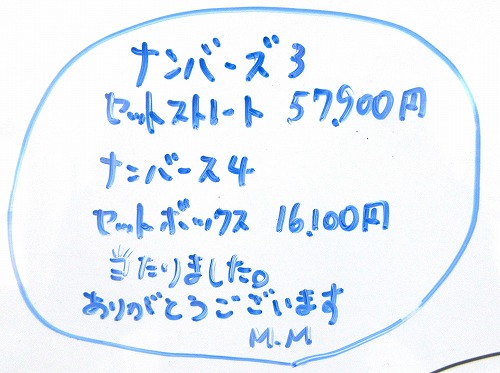 ナンバーズ3
セットストレート 57,900円
ナンバース4
セットボックス 16,100円
当たりました。
ありがとうございます
M.M